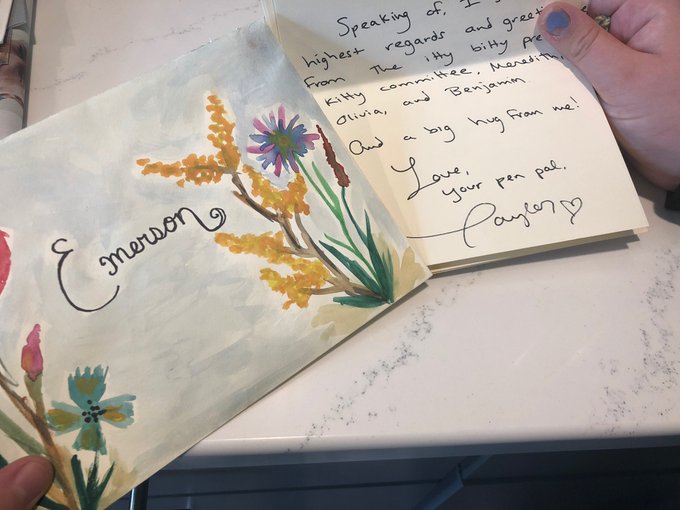 Emerson
Speaking of, I
highest regards and
From The itty bitty
Kitty committee, Meredith,
Olivia, and Benjamin.
And a big hug From me!
Love,
your pen pal,
Taylor ♡